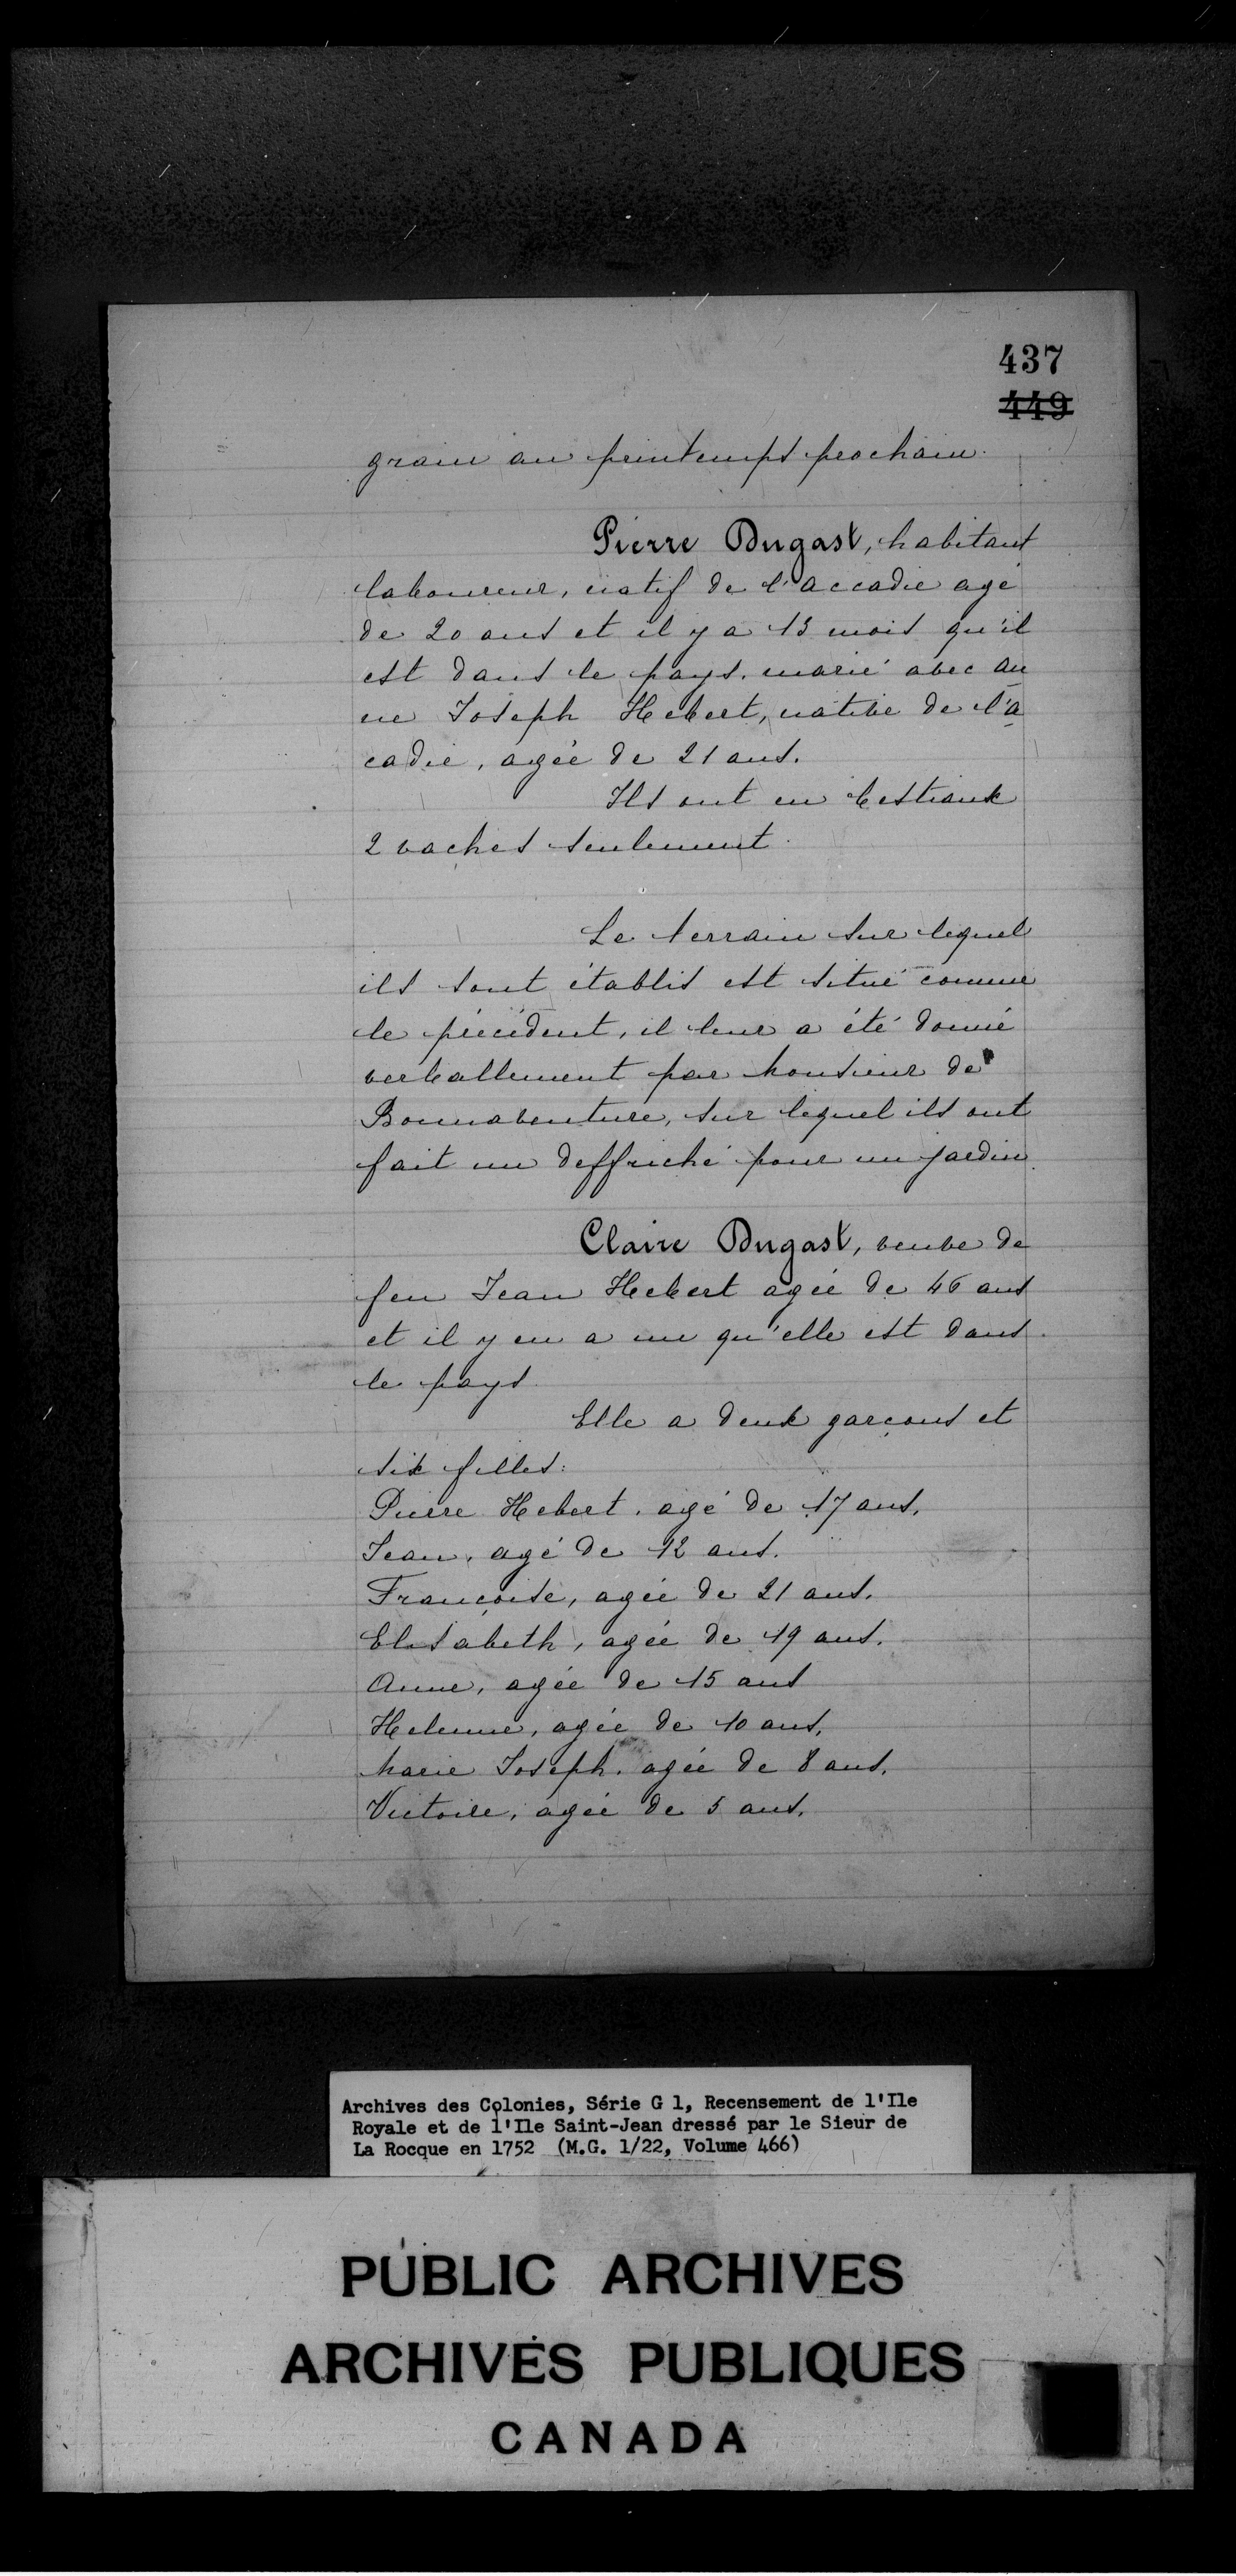 437
449
grain au printemps prochain.
Pierre Dugast, habitant
laboureur, natif de l'accadie agé
de 20 ans et il y a 13 mois qu'il
est dans le pays, marié avec an
ne Joseph Hebert, native de l'a
cadie, agée de 21 ans.
Ils ont en bestiaux
2 vaches seulement.
Le terrain sur lequel
ils sont établis est situé comme
le précédent, il leur a été donné
verballement par monsieur de
Bonnaventure, sur lequel ils ont
fait un deffriché pour un jardin.
Claire Dugast, veuve de
feu Jean Hebert agée de 46 ans
et il y en a un qu'elle est dans
le pays.
Elle a deux garçons et
six filles:
Pierre Hebert, agé de 17 ans,
Jean, agé de 12 ans.
Françoise, agée de 21 ans.
Elisabeth, agée de 19 ans.
Anne, agée de 15 ans
Helenne, agée de 10 ans,
Marie Joseph, agée de 8 ans.
Victoire, agée de 5 ans.
Archives des Colonies, Série G 1, Recensement de l'Ile
Royale et de l'Ile Saint-Jean dressé par le Sieur de
La Rocque en 1752 (M.G. 1/22, Volume 466)
PUBLIC ARCHIVES
ARCHIVES PUBLIQUES
CANADA